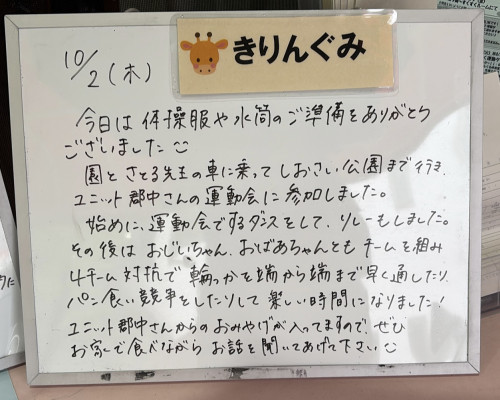 きりんぐみ
10/2(木)
今日は体操服や水筒のご準備をありがとう
ございました☺
園とさとる先生の車に乗ってしおさい公園まで行き、
ユニット郡中さんの運動会に参加しました。
始めに、運動会でするダンスをして、リレーもしました。
その後はおじいちゃん、おばあちゃんともチームを組み
4チーム対抗で輪っかを端から端まで早く通したり、
パン食い競争をしたりして楽しい時間になりました!
ユニット郡中さんからのおみやげが入ってますので、ぜひ
お家で食べながらお話を聞いてあげて下さい☺